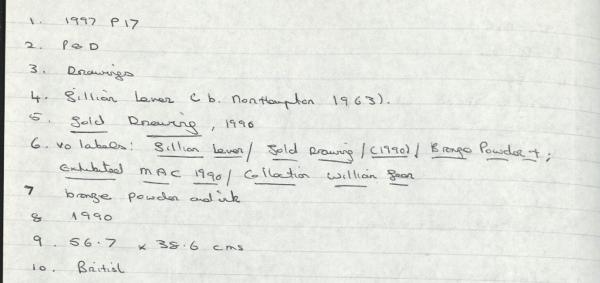 1. 1997 P17
2. P & D
3. Drawings
4. Gillian Lever (b. Northampton 1963).
5. Gold Drawing, 1990
6. vo labels: Gillian Lever/ Gold Drawing / (1990) / Bronze Powder + ;
Exhibited MAC 1990/ Collection William Gear
7 bronze powder and ink
8 1990
9. 56.7 x 38.6 cms
10. British